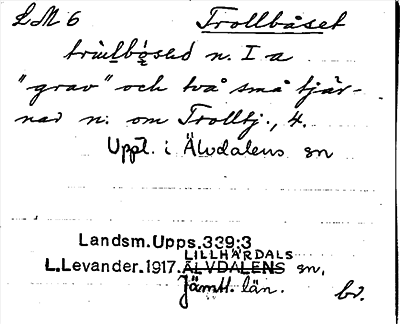 LM 6 Trollbåset
n. I a
"grav" och två små tjär-
nar n. om Trolltj., 4.
Uppt. i Älvdalens sn
Landsm.Upps.339:3
LILLHÄRDALS
L.Levander.1917. ÄLVDALENS sn,
Jämtl. län.